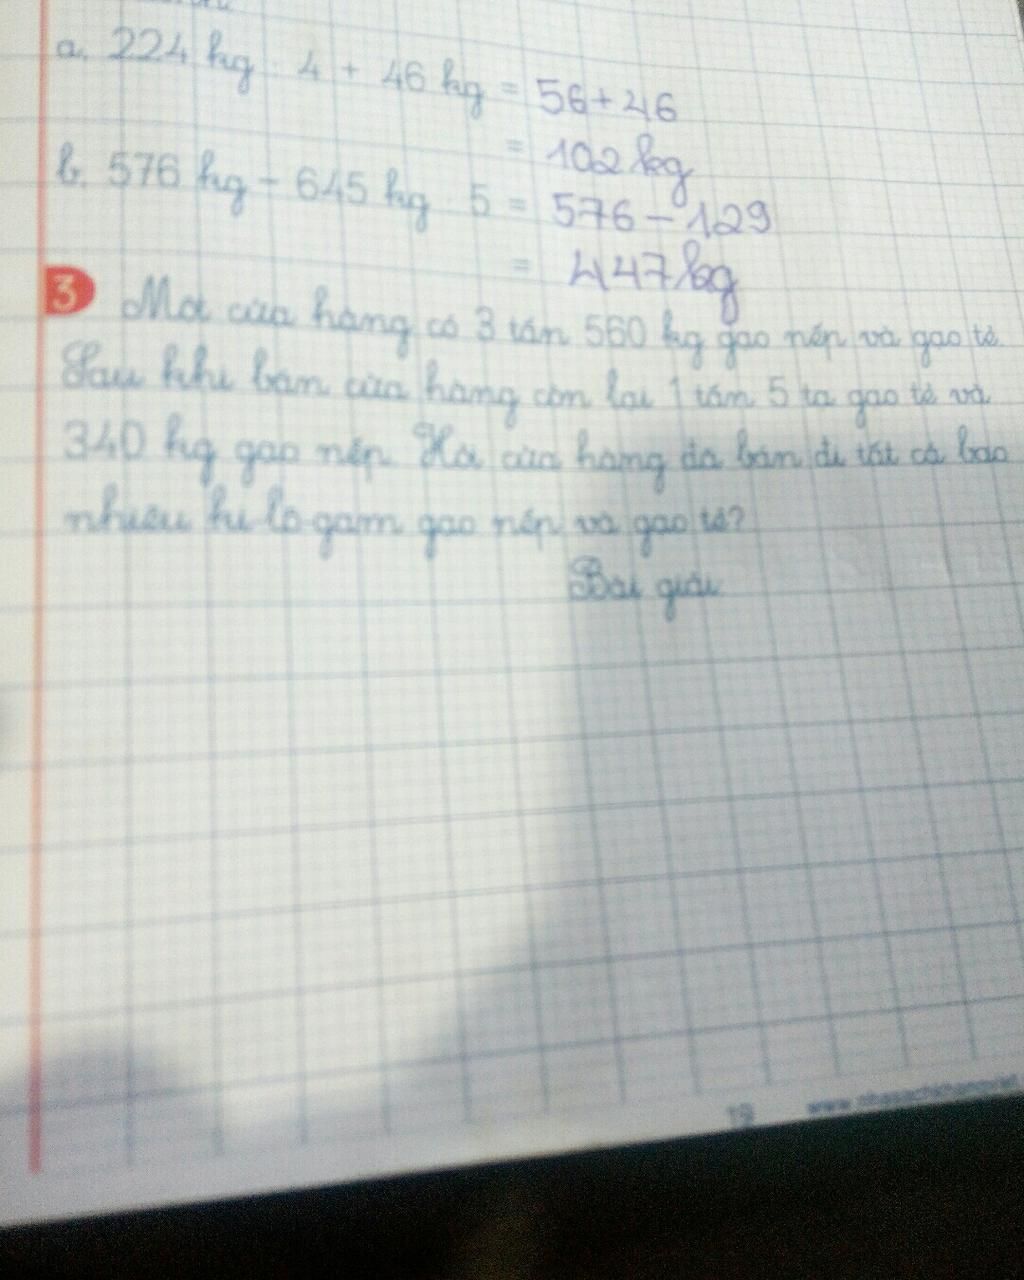 a. 224 kg : 4 + 46 kg = 56 + 46
= 102 kg
b. 576 kg - 645 kg : 5 = 576 - 129
= 447 kg
3 Một cửa hàng có 3 tấn 560 kg gạo nếp và gạo tẻ.
Sau khi bán cửa hàng còn lại 1 tấn 5 tạ gạo tẻ và
340 kg gạo nếp. Hỏi cửa hàng đã bán đi tất cả bao
nhiêu ki-lô-gam gạo nếp và gạo tẻ?
Bài giải
19